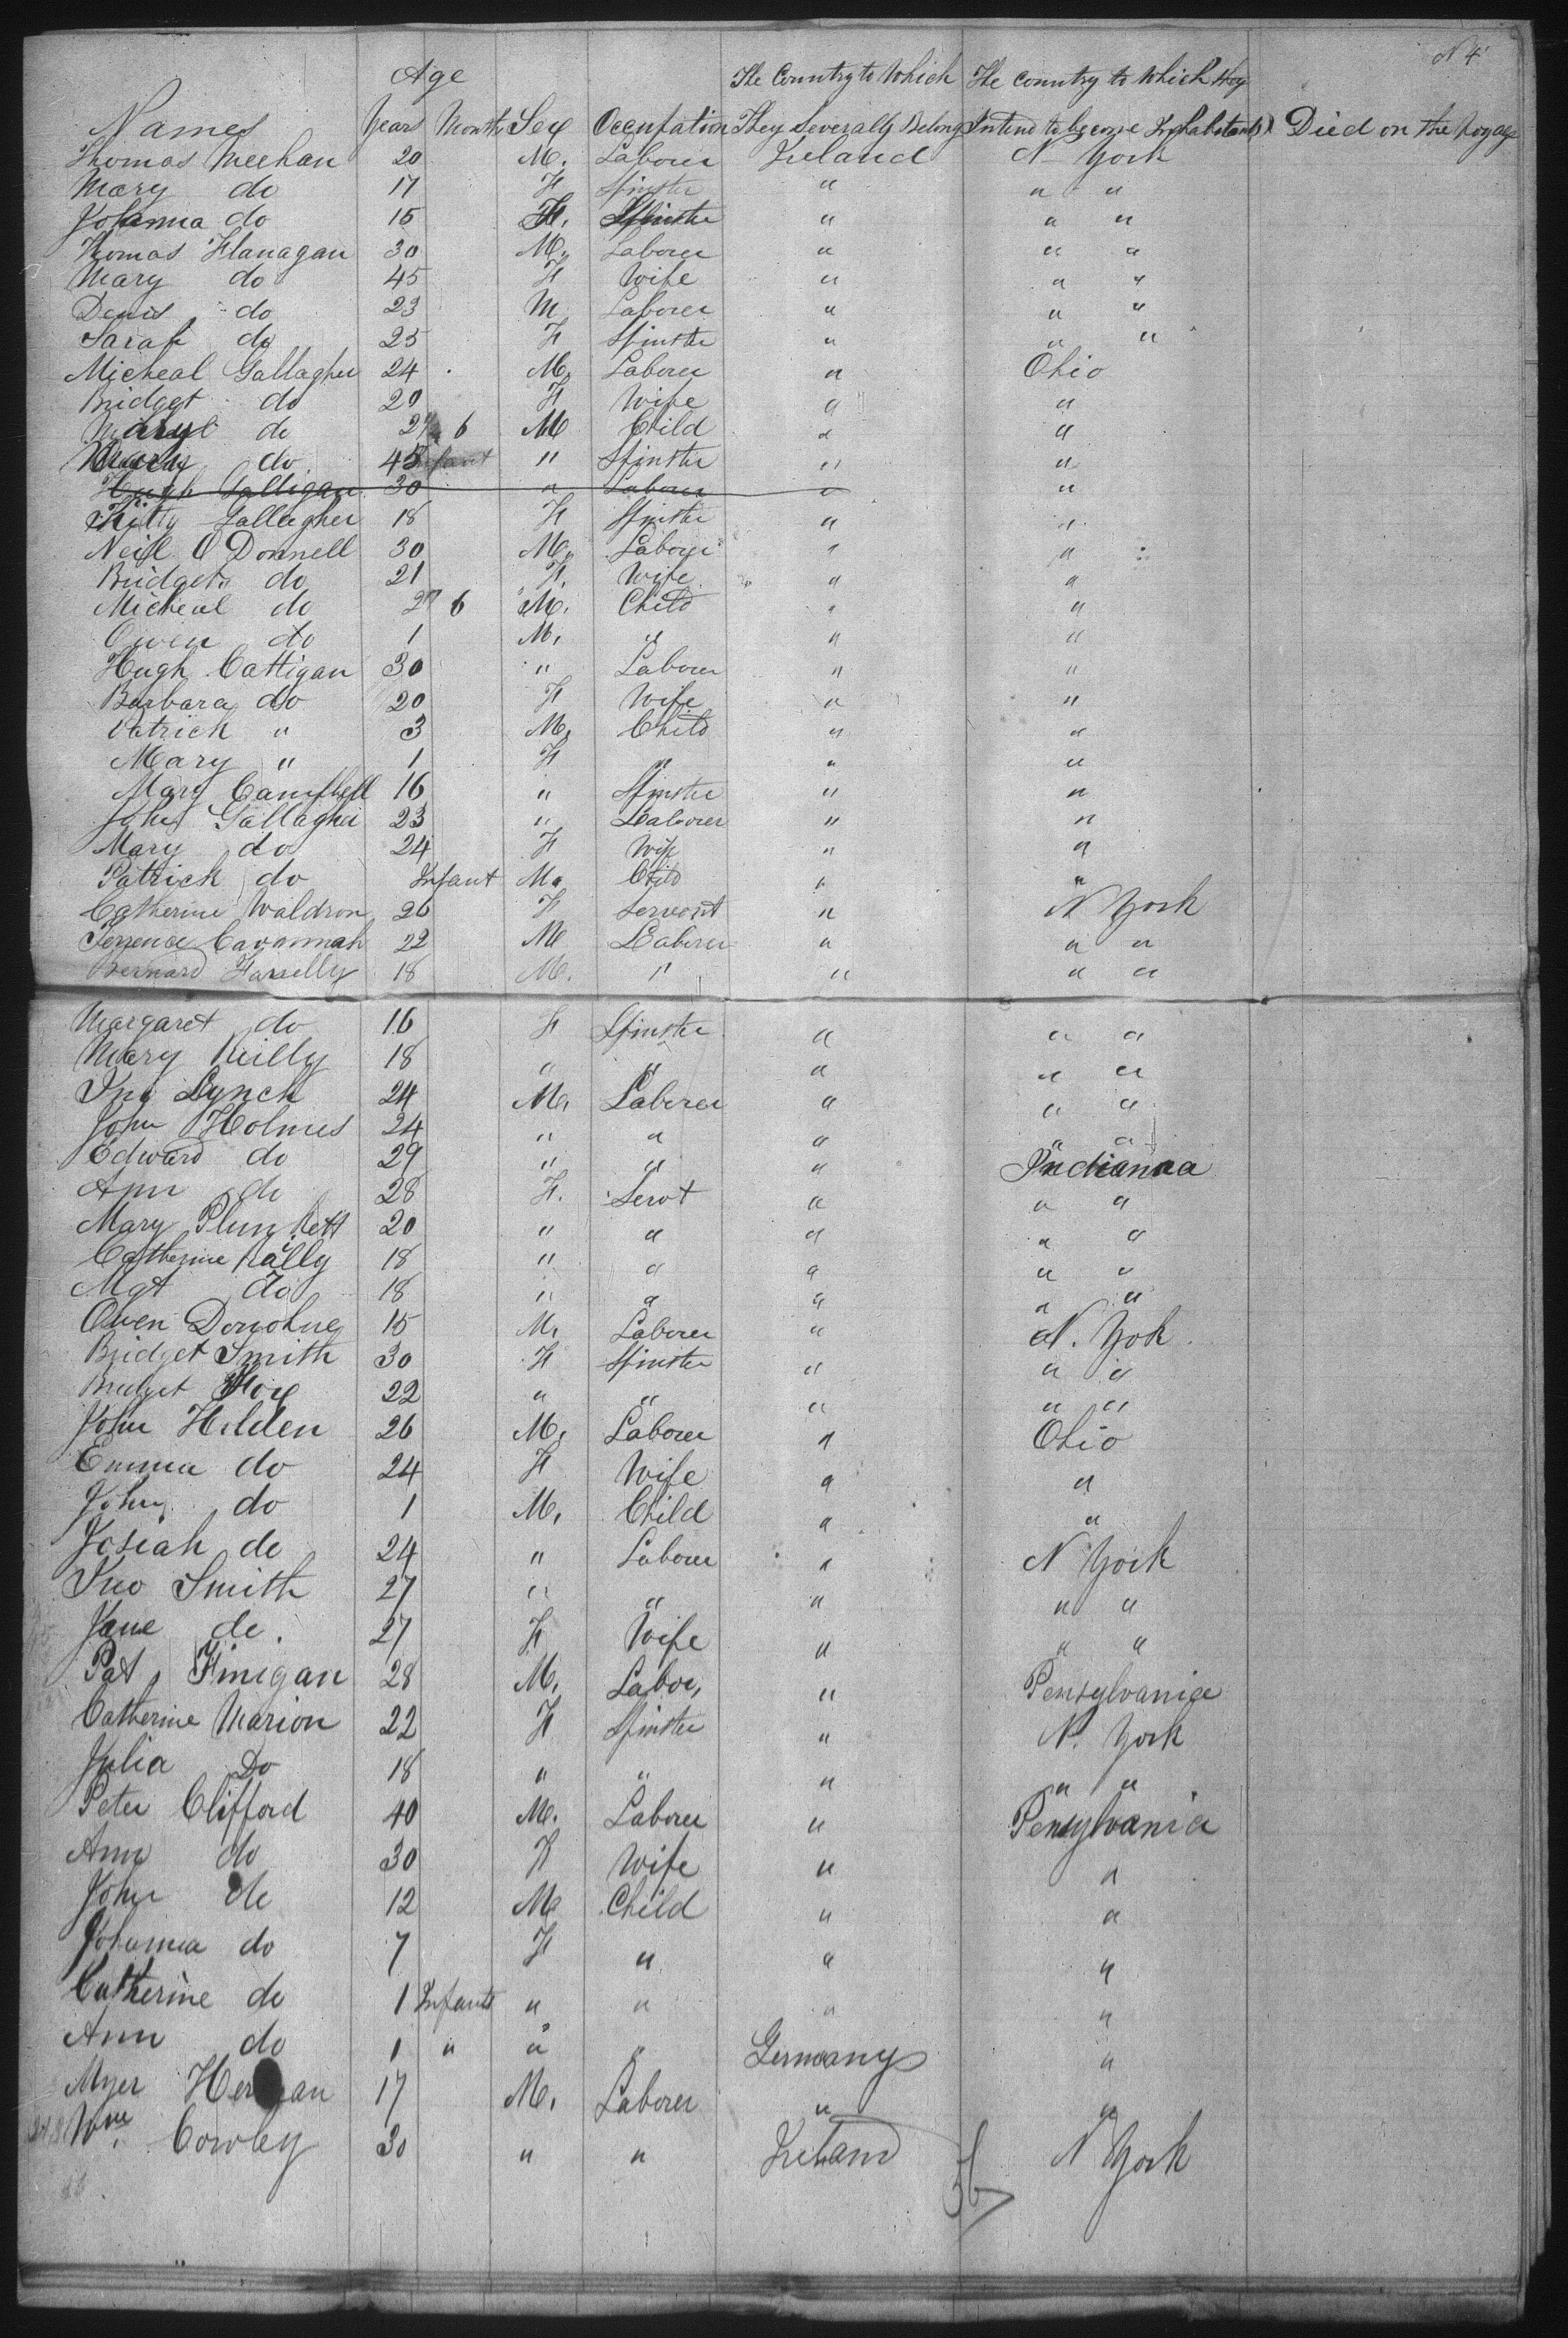 N 4
Age The Country to Which The Country to Which they
Names Years Months Sex Occupation They Severally Belong Intend to become Inhabitants Died on the Voyage
Thomas Meehan 20 M. Laborer Ireland N York
Mary do 17 F Spinster " " "
Johanna do 15 F. Spinster " " "
Thomas Flanagan 30 M. Laborer " " "
Mary do 45 F Wife " " "
Denis do 23 M Laborer " " "
Sarah do 25 F Spinster " " "
Micheal Gallagher 24 M. Laborer " Ohio
Bridget do 20 F Wife " "
do 2 6 M Child " "
do 45 Infant " Spinster " "
Hugh Galligan 30 " Laborer " "
Kitty Gallagher 18 F Spinster " "
Neil O Donnell 30 M. Laborer " "
Bridget do 21 F. Wife " "
Micheal do 2 6 M. Child " "
Owen do 1 M. " " "
Hugh Cattigan 30 " Laborer " "
Barbara do 20 F Wife " "
Patrick " 3 M. Child " "
Mary " 1 F " " "
Mary Campbell 16 " Spinster " "
John Gallagher 23 " Laborer " "
Mary do 24 F Wife " "
Patrick do Infant M. Child " "
Catherine Waldron 26 F Servant " N York
Terrence Cavannah 22 M Laborer " " "
Bernard Farrelly 18 M. " " " "
Margaret do 16 F Spinster " " "
Mary Reilly 18 " " " " "
Jno Lynch 24 M. Laborer " " "
John Holmes 24 " " " " "
Edward do 29 " " " Indianna
Ann do 28 F. Servt " " "
Mary Plunkett 20 " " " " "
Catherine Railly 18 " " " " "
Mgt do 18 " " " " "
Owen Donohue 15 M. Laborer " N. Yok
Bridget Smith 30 F Spinster " " "
Bridget Hoy 22 " " " " "
John Hilden 26 M. Laborer " Ohio
Emma do 24 F Wife " "
John do 1 M. Child " "
Josiah do 24 " Laborer " N York
Jno Smith 27 " " " " "
Jane do. 27 F Wife " " "
Pat Finigan 28 M. Labor, " Pensylvania
Catherine Marion 22 F Spinster " N. York
Julia Do 18 " " " " "
Peter Clifford 40 M. Laborer " Pensylvania
Ann do 30 F Wife " "
John do 12 M Child " "
Johanna do 7 F " " "
Catherine do 1 Infants " " " "
Ann do 1 " " " Germany "
Myer Herman 17 M. Laborer " "
Wm. Cowley 30 " " Ireland N York
56